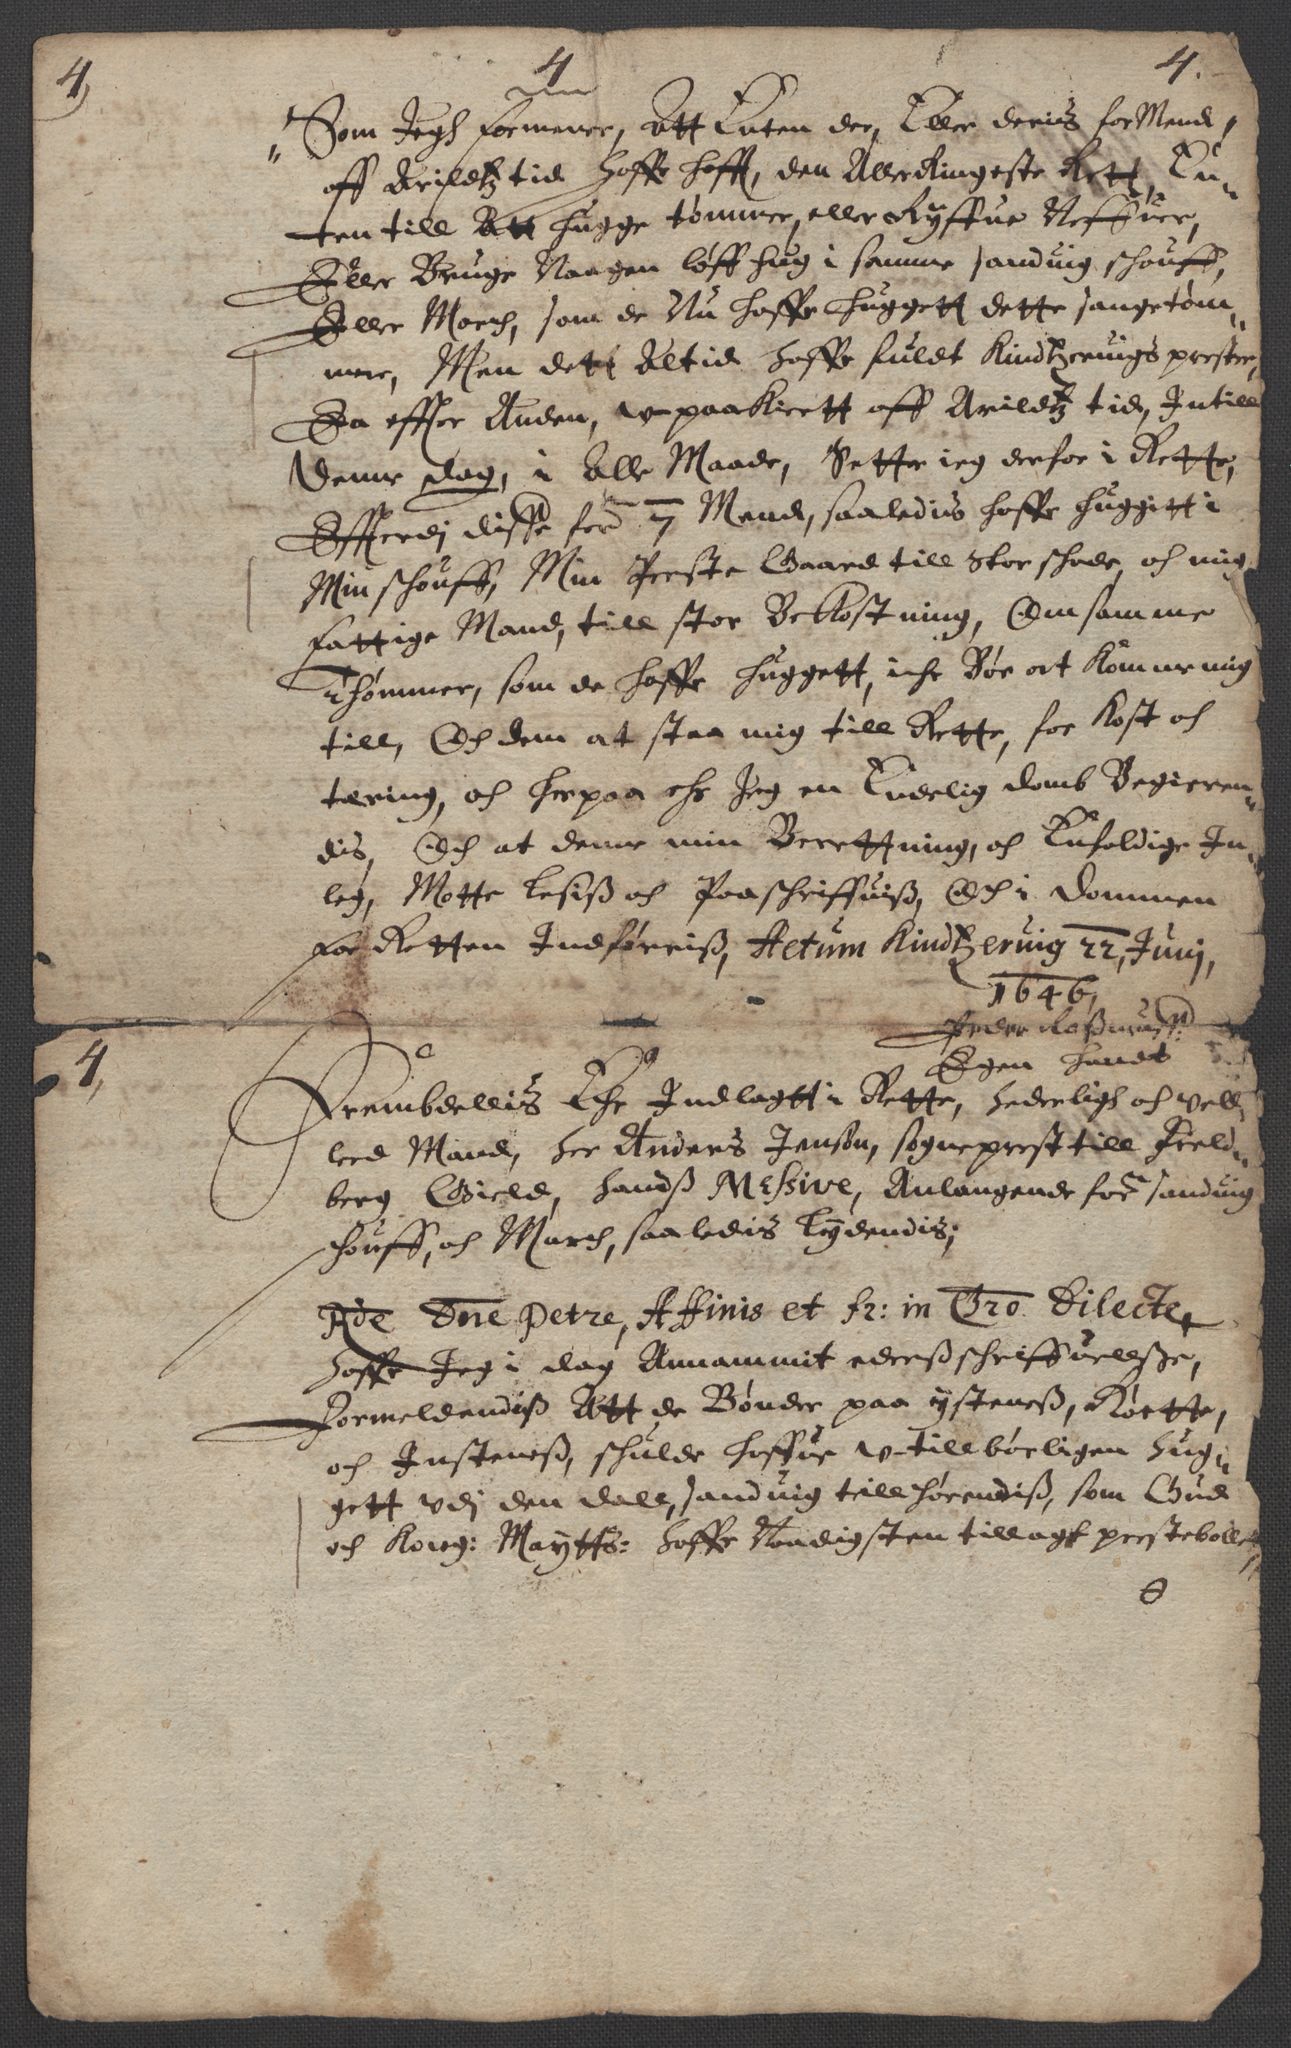 4) 4 4.
Som Jegh formener, Att Enten der, Eller deris forMend,
aff Arildtz tid haffr hafft, den Allerringeste Rett, En-
ten till Att hugge tømmer, eller Ryffue Neffuer,
Eller Bruge Naagen løffhug i samme sanduig schouff,
Eller March, som de Nu haffr huggett dette sangetøm-
mer, Men dett Altid haffr fuldt Kindtzeruigs prester,
Ea effter Anden, vpaakiertt aff Arildtz tid, Intill
Denne dag, i Alle Maade, Setter ieg derfor i Rette,
Effterdj disse ford 7 Mend, saaledis haffr huggitt i
Min schouff, Min Preste Gaard till stor schade, och mig
fattige Mand, till stor Bekostning, Om samme
Thømmer, som de haffr huggett, iche Bør at komme mig
till, Och dem at staa mig till Rette, for Kost och
tæring, och herpaa ehr Jeg en Endelig domb Begieren-
dis, Och at denne min Berettning, och Enfoldige In-
leg, Motte Lesiß och Paaschriffuiß, Och i Dommen
for Retten Indføriß, Actum Kindtzeruig 22, Junj,
1646,
Peder
Egen handt
4,
Frembdellis Ehr Indlagtt i Rette, hederligh och vell
lerd Mand, her Anders Jensøn, sogneprest till Field-
berg Gield, handß Messive, Anlangende ford sanduig
schouff, och March, saaledis Lydendis;
Rde Dne Petre, Affinis et fr: in Chro Dilecte,
haffr Jeg i dag Annammit ederß schriffuellße,
Formeldendiß Att de Bønder paa ysteneß, Kortte,
och Insteneß, schulde haffue v-tillbørligen hug-
gett vdj den dall, sanduig tillhørendiß, som Gud
och Kong: Maytts: haffr Naadigsten tillagt prestebollet,